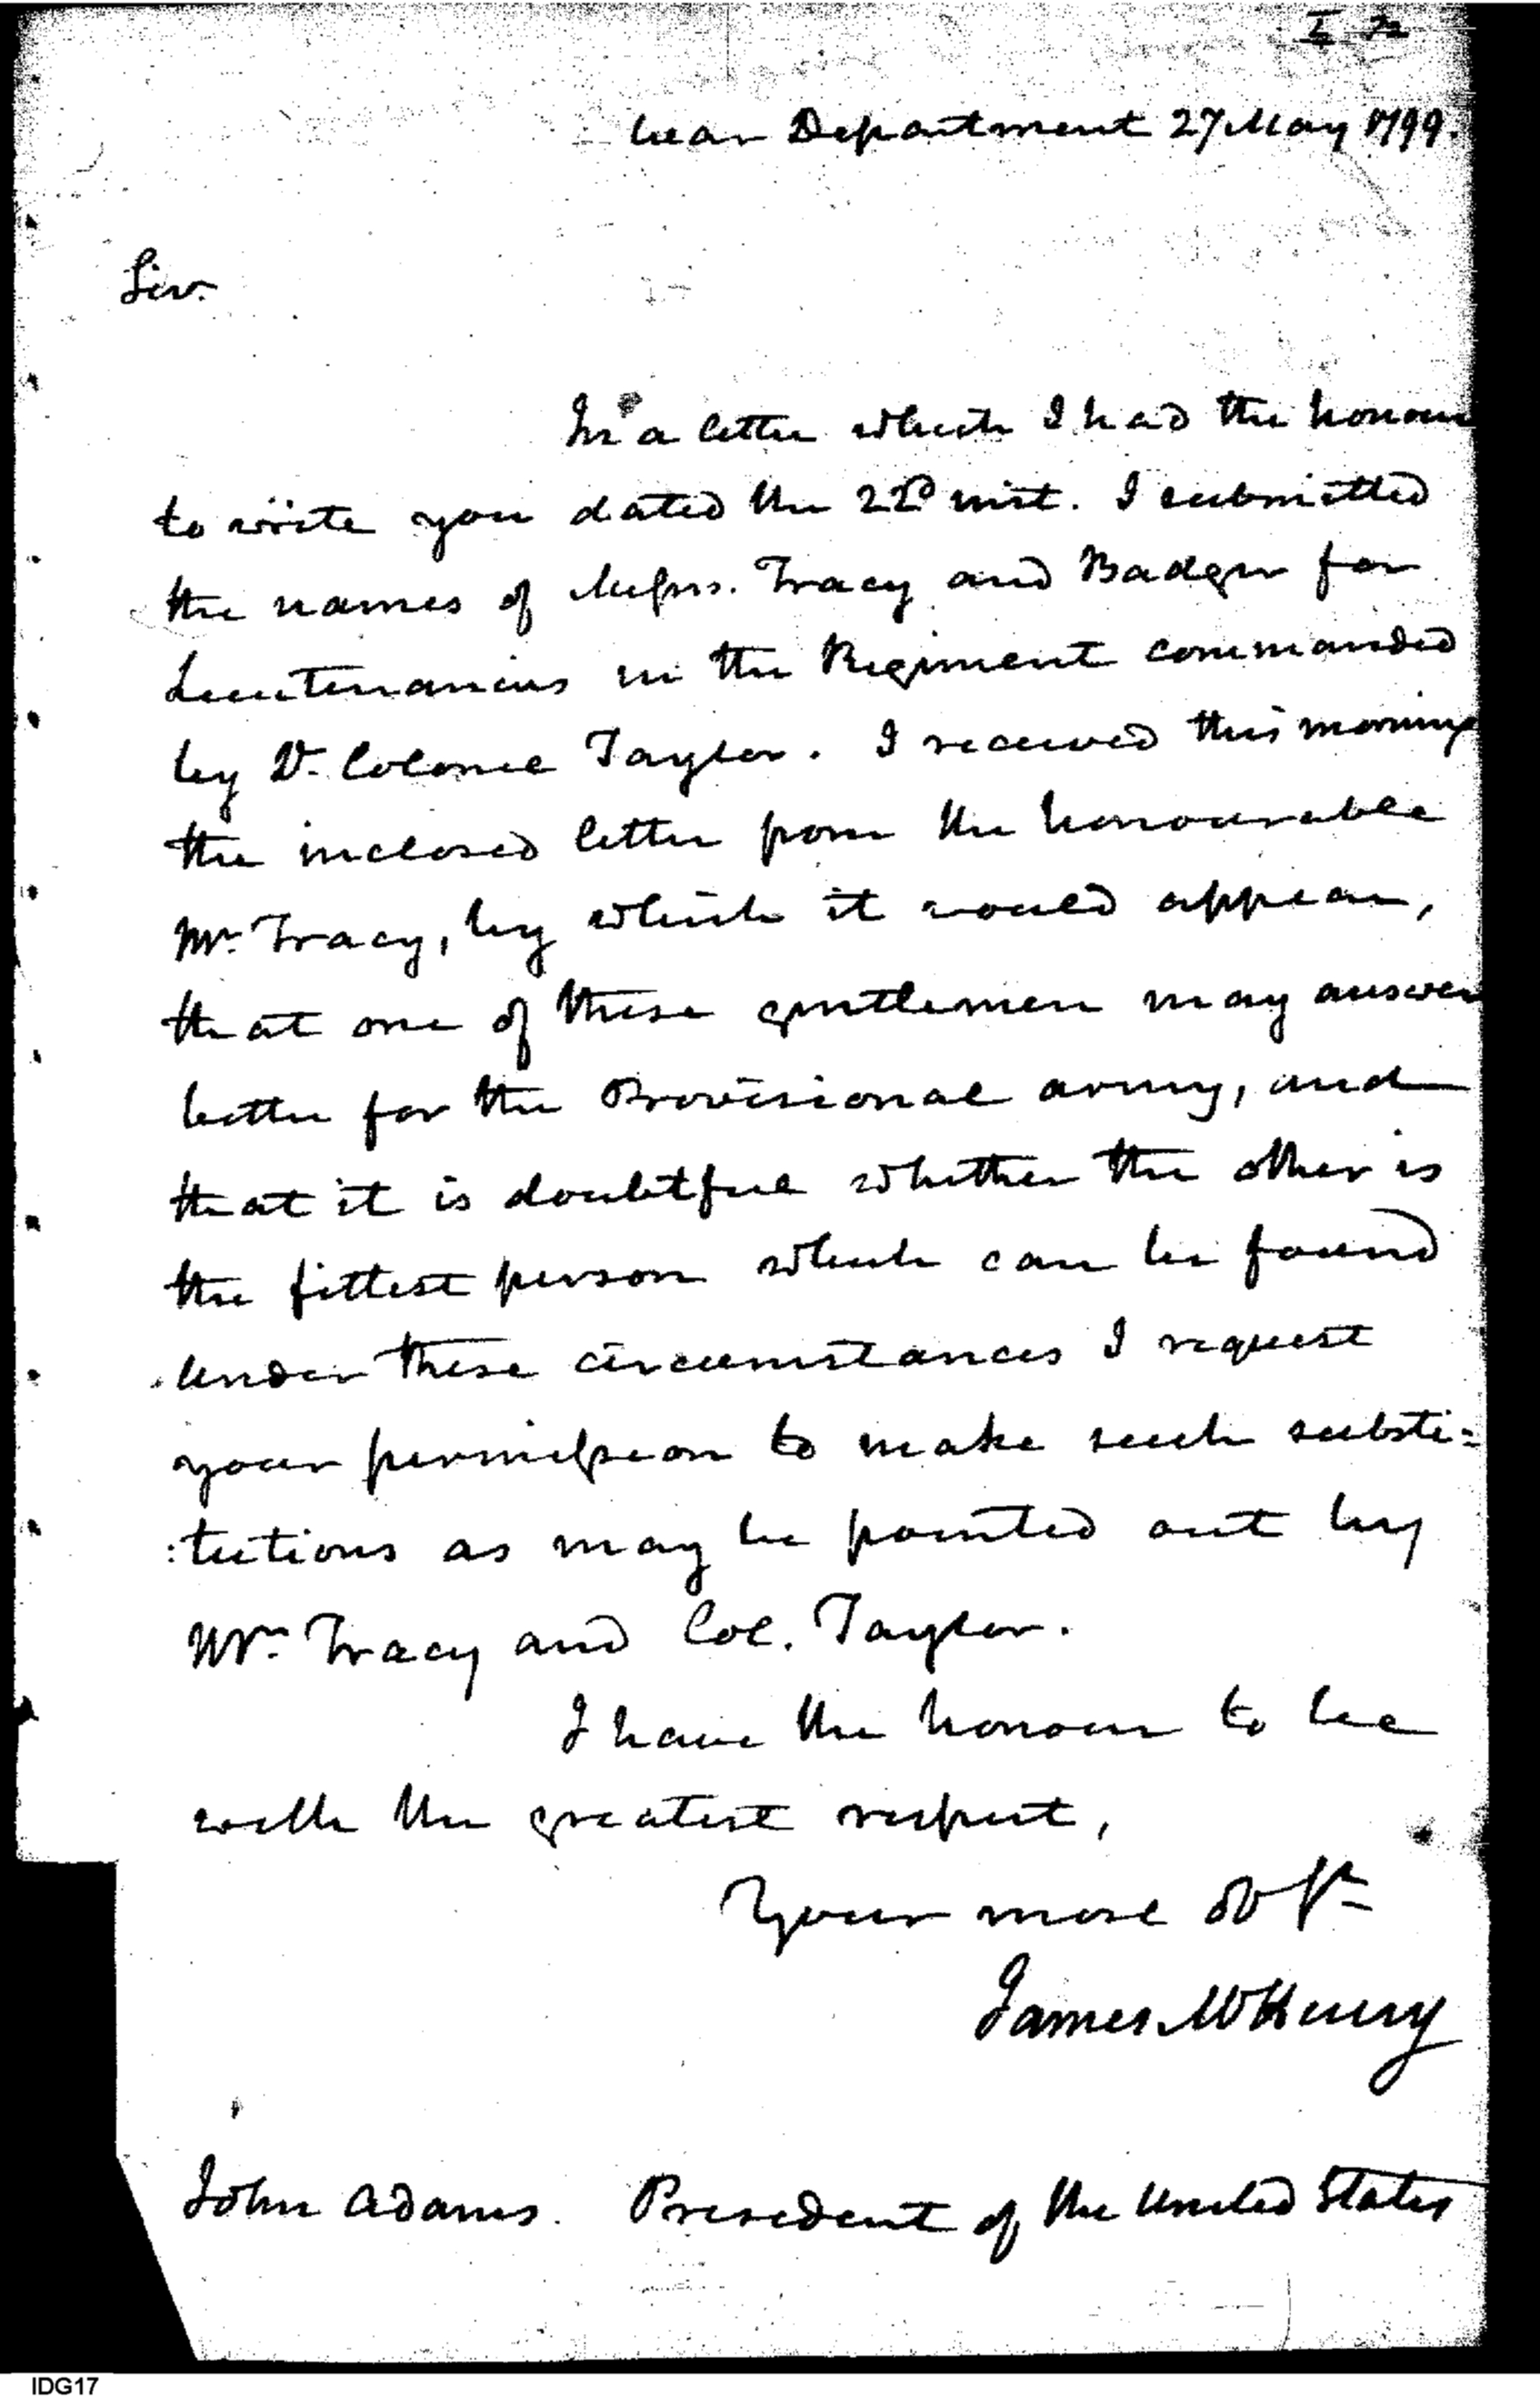 War Department 27 May 1799.
Sir.
In a letter which I had the honour
to write you dated the 22d inst. I submitted
the names of Messrs. Tracy and Badger for
Lieutenancies in the Regiment commanded
by Lt. Colonel Taylor. I received this morning
the inclosed letter from the honourable
Mr. Tracy, by which it would appear,
that one of these gentlemen may answer
better for the Provisional army, and
that it is doubtful whether the other is
the fittest person which can be found
Under these circumstances I request
your permission to make such substi=
:tutions as may be pointed out by
Mr. Tracy and Col. Taylor.
I have the honour to be
with the greatest respect,
Your most ob st
James McHenry
John Adams. President of the United States
IDG17